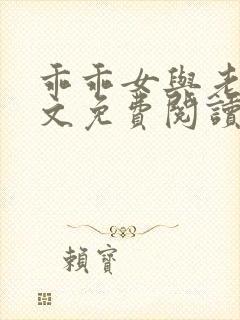 乖乖女與老
文免費閱讀
賴寶